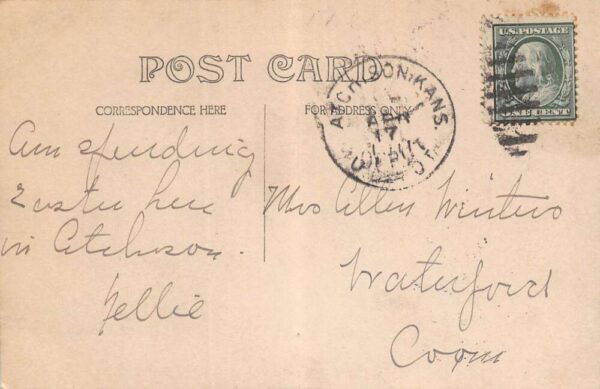 U.S. POSTAGE
ONE CENT
POST CARD
ATCHISON, KANS.
APR
17
CORRESPONDENCE HERE
FOR ADDRESS ONLY
Am spending
Easter here
in Atchison.
Nellie
Mrs Allen Winters
Waterford
Conn